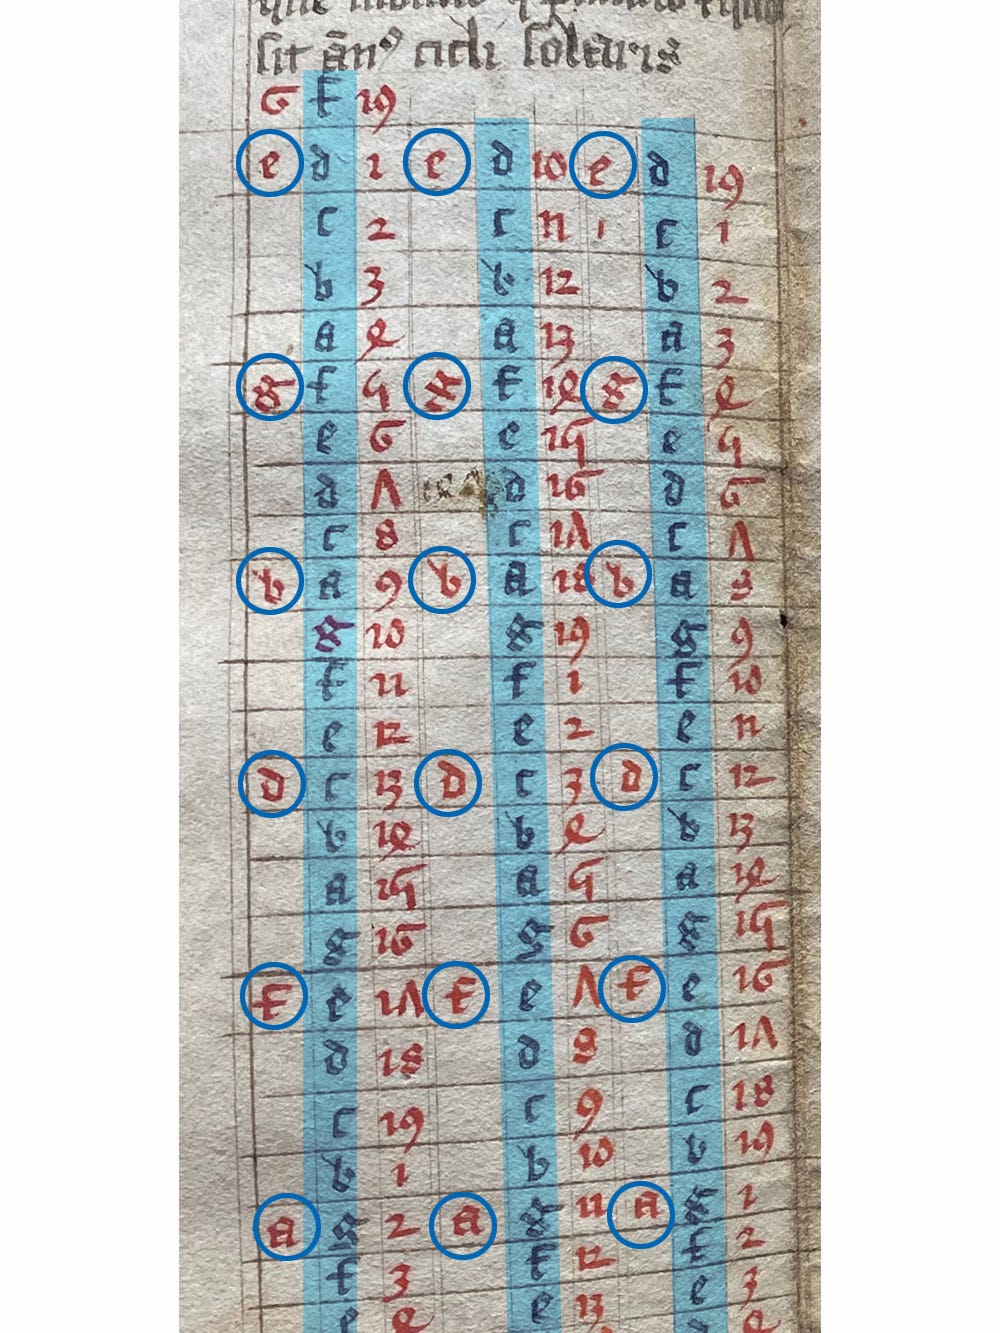 sit ān⁹ cicli solaris
G f 19
e d 1 e d 10 e d 19
c 2 c 11 1 c 1
b 3 b 12 b 2
a 4 a 13 a 3
g f 5 g f 14 g f 4
e 6 e 15 e 5
d 7 d 16 d 6
c 8 c 17 c 7
b a 9 b a 18 b a 8
g 10 g 19 g 9
f 11 f 1 f 10
e 12 e 2 e 11
d c 13 d c 3 d c 12
b 14 b 4 b 13
a 15 a 5 a 14
g 16 g 6 g 15
f e 17 f e 7 f e 16
d 18 d 8 d 17
c 19 c 9 c 18
b 1 b 10 b 19
a g 2 a g 11 a g 1
f 3 f 12 f 2
e 4 e 13 e 3
4